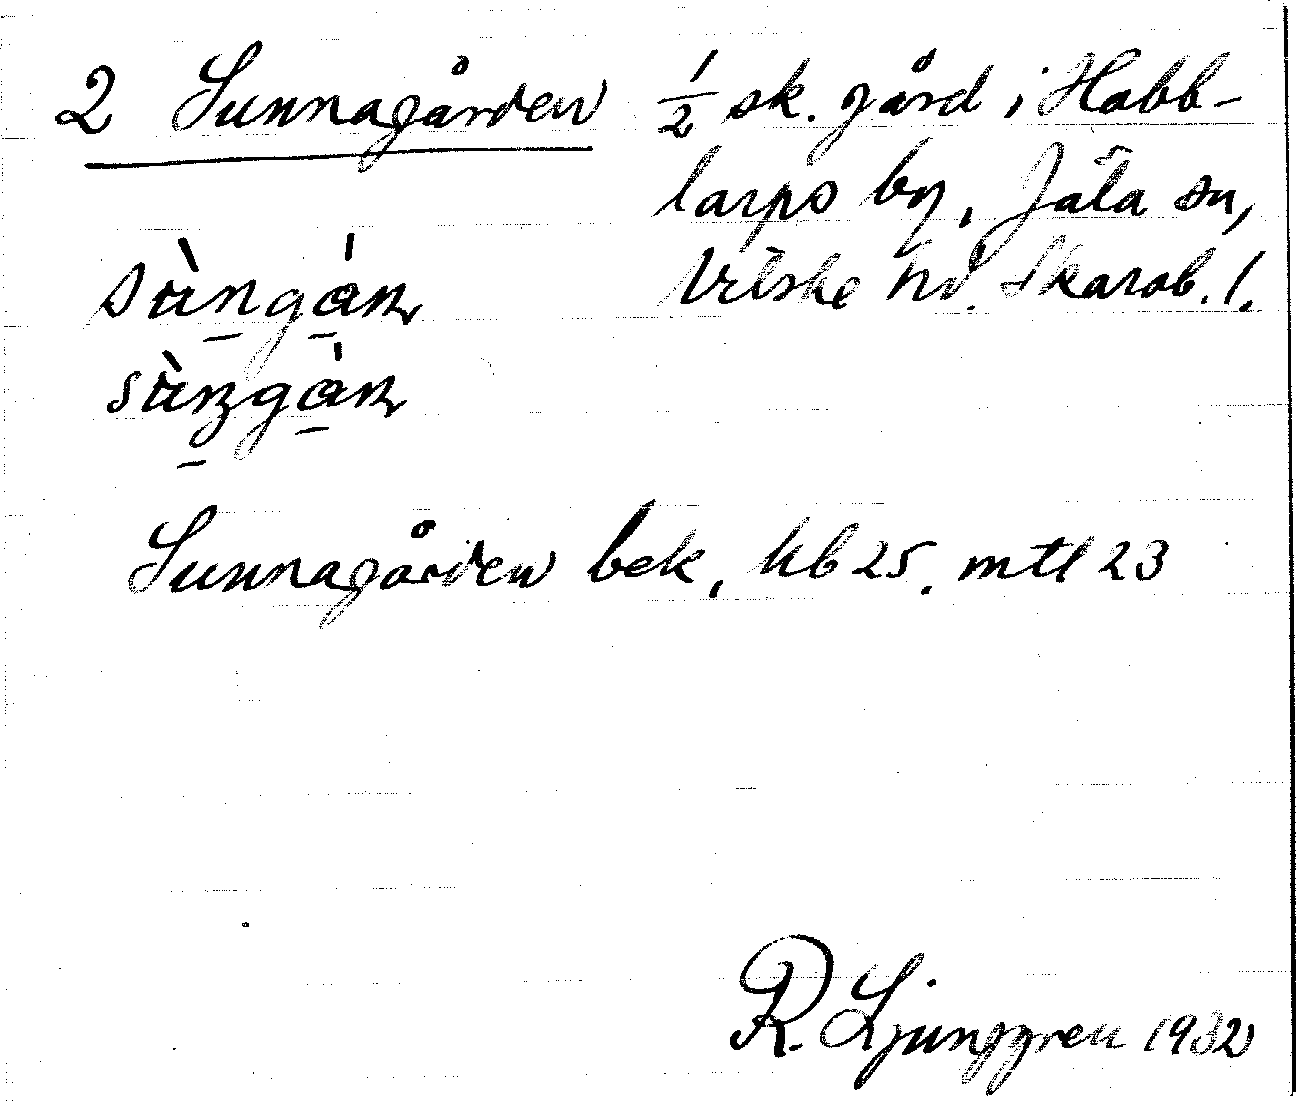 2 Sunnagården ½ sk. gård i Habb-
larps by, Jäla sn,
Vilske hd. Skarab. l.
Sunnagården bek, hb 25. mtl 23
R. Ljunggren 1932